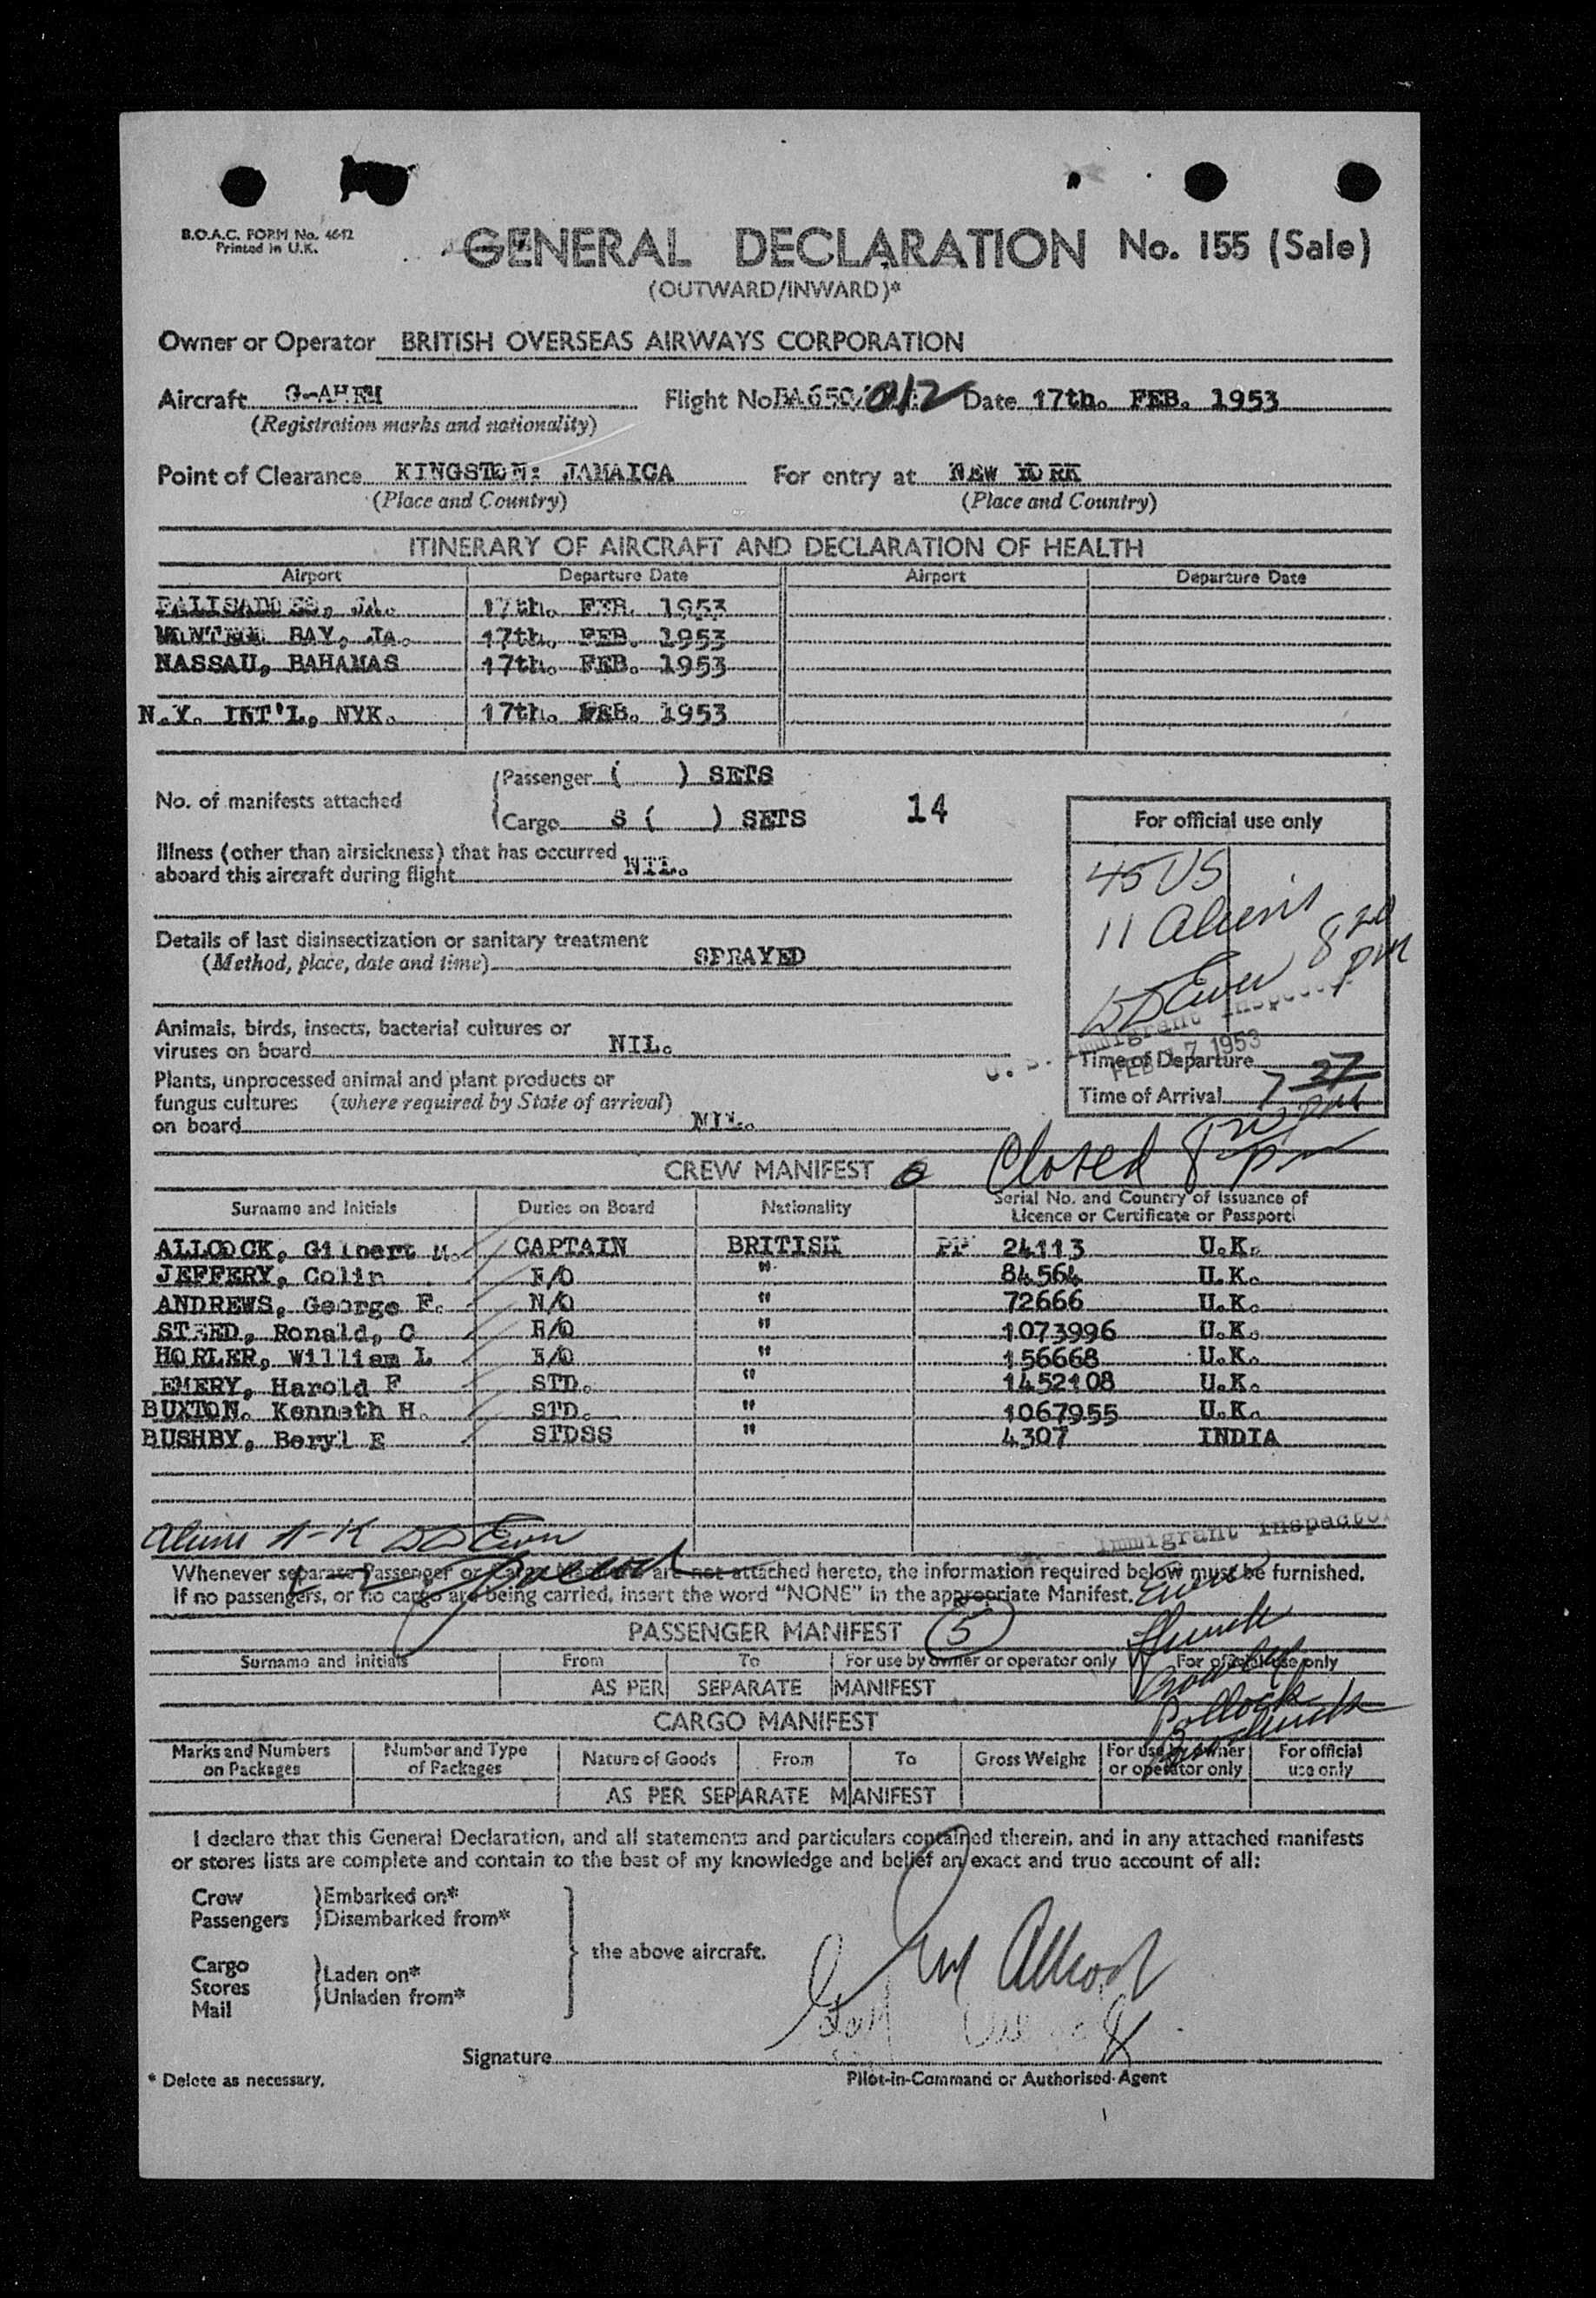 B.O.A.C. FORM No. 4642
Printed in U.K.
GENERAL DECLARATION No. 155 (Sale)
(OUTWARD/INWARD)*
Owner or Operator BRITISH OVERSEAS AIRWAYS CORPORATION
Aircraft G-AHEM Flight No BA650/012 Date 17th. FEB. 1953
(Registration marks and nationality)
Point of Clearance KINGSTON: JAMAICA For entry at NEW YORK
(Place and Country) (Place and Country)
ITINERARY OF AIRCRAFT AND DECLARATION OF HEALTH
Airport Departure Date Airport Departure Date
PALISADOES, JA. 17th. FEB. 1953
MONTEGO BAY, JA. 17th. FEB. 1953
NASSAU, BAHAMAS 17th. FEB. 1953
N.Y. INT'L, NYK. 17th. FEB. 1953
No. of manifests attached
Passenger ( ) SETS
Cargo S ( ) SETS 14
For official use only
Illness (other than airsickness) that has occurred
aboard this aircraft during flight NIL.
45 US
11 Aliens
8 20 PM
Details of last disinsectization or sanitary treatment
(Method, place, date and time) SPRAYED
U.S. Immigrant Inspector
FEB 17 1953
Animals, birds, insects, bacterial cultures or
viruses on board NIL.
Time of Departure
Time of Arrival 7 27 PM
Plants, unprocessed animal and plant products or
fungus cultures (where required by State of arrival)
on board NIL.
Closed 8 pm
CREW MANIFEST
Surname and Initials Duties on Board Nationality Serial No. and Country of Issuance of
Licence or Certificate or Passport
ALLCOCK, Gilbert M. CAPTAIN BRITISH PP 24113 U.K.
JEFFERY, Colin F/O " 84564 U.K.
ANDREWS, George F. N/O " 72666 U.K.
STEED, Ronald, C R/O " 1073996 U.K.
HORLER, William L E/O " 156668 U.K.
EMERY, Harold F STD. " 1452108 U.K.
BUXTON. Kenneth H. STD. " 1067955 U.K.
BUSHBY, Beryl E STDSS " 4307 INDIA
Immigrant Inspector
Whenever separate Passenger or Cargo Manifests are not attached hereto, the information required below must be furnished.
If no passengers, or no cargo are being carried, insert the word "NONE" in the appropriate Manifest.
PASSENGER MANIFEST 5
Surname and Initials From To For use by owner or operator only For official use only
AS PER SEPARATE MANIFEST
Pollock
CARGO MANIFEST
Marks and Numbers on Packages Number and Type of Packages Nature of Goods From To Gross Weight For use by owner or operator only For official use only
AS PER SEPARATE MANIFEST
I declare that this General Declaration, and all statements and particulars contained therein, and in any attached manifests
or stores lists are complete and contain to the best of my knowledge and belief an exact and true account of all:
Crew
Passengers
Embarked on*
Disembarked from*
the above aircraft.
Cargo
Stores
Mail
Laden on*
Unladen from*
Signature
* Delete as necessary.
Pilot-in-Command or Authorised Agent